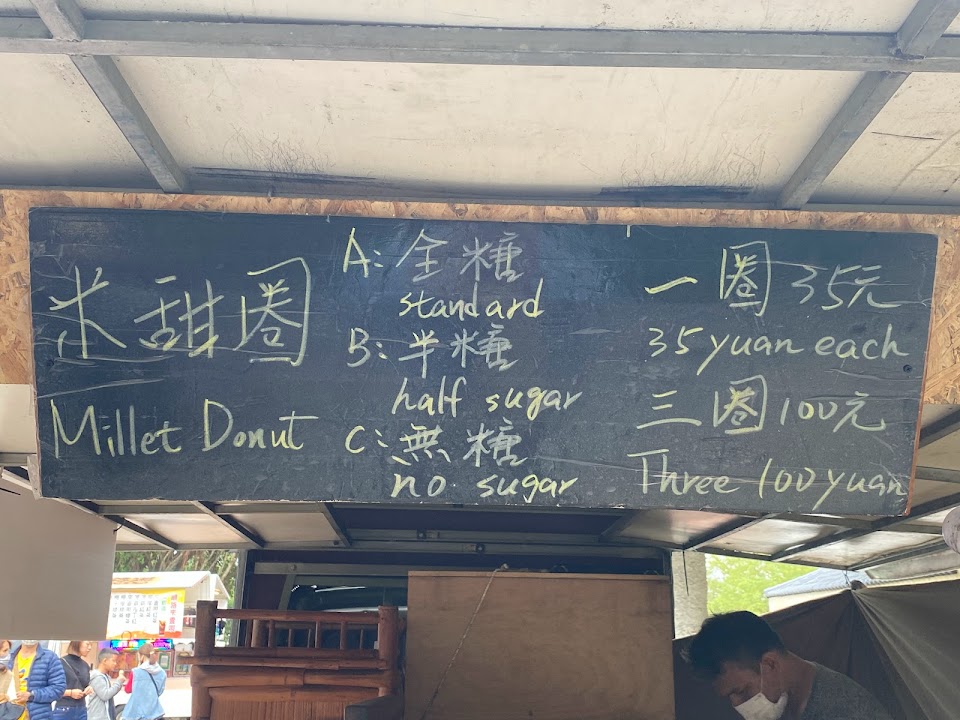 米甜圈
Millet Donut
A:全糖
standard
B:半糖
half sugar
C:無糖
no sugar
一圈35元
35 yuan each
三圈100元
Three 100 yuan